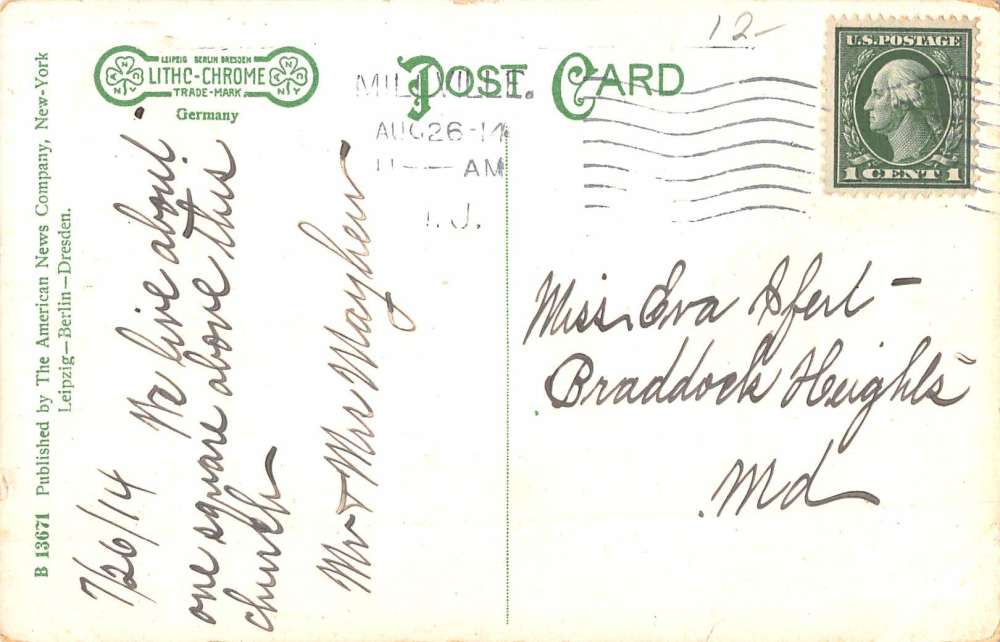 12-
LEIPZIG BERLIN DRESDEN
LITHO-CHROME
TRADE-MARK
Germany
POST CARD
MILLVILLE.
AUG 26-14
11 — AM
N.J.
U.S. POSTAGE
1 CENT 1
B 13671 Published by The American News Company, New-York
Leipzig—Berlin—Dresden.
7/26/14
We live about
one square above this
church
Mr & Mrs Mayhew
Miss. Eva
Braddock Heights
Md